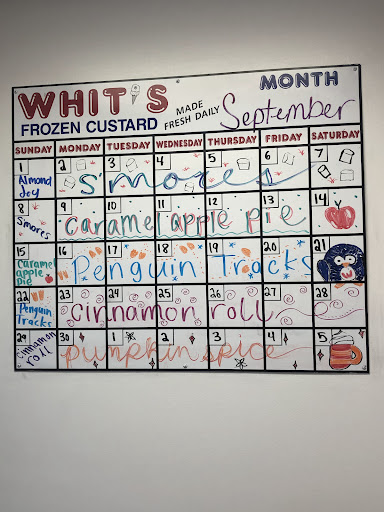 WHIT'S
FROZEN CUSTARD
MADE
FRESH DAILY
MONTH
September
SUNDAY MONDAY TUESDAY WEDNESDAY THURSDAY FRIDAY SATURDAY
1 2 3 4 5 6 7
Almond
Joy
S'mores
8 9 10 11 12 13 14
S'mores
caramel apple pie
15 16 17 18 19 20 21
Caramel
apple
pie
Penguin Tracks
22 23 24 25 26 27 28
Penguin
Tracks
Cinnamon roll
29 30 1 2 3 4 5
Cinnamon
roll
pumpkin spice